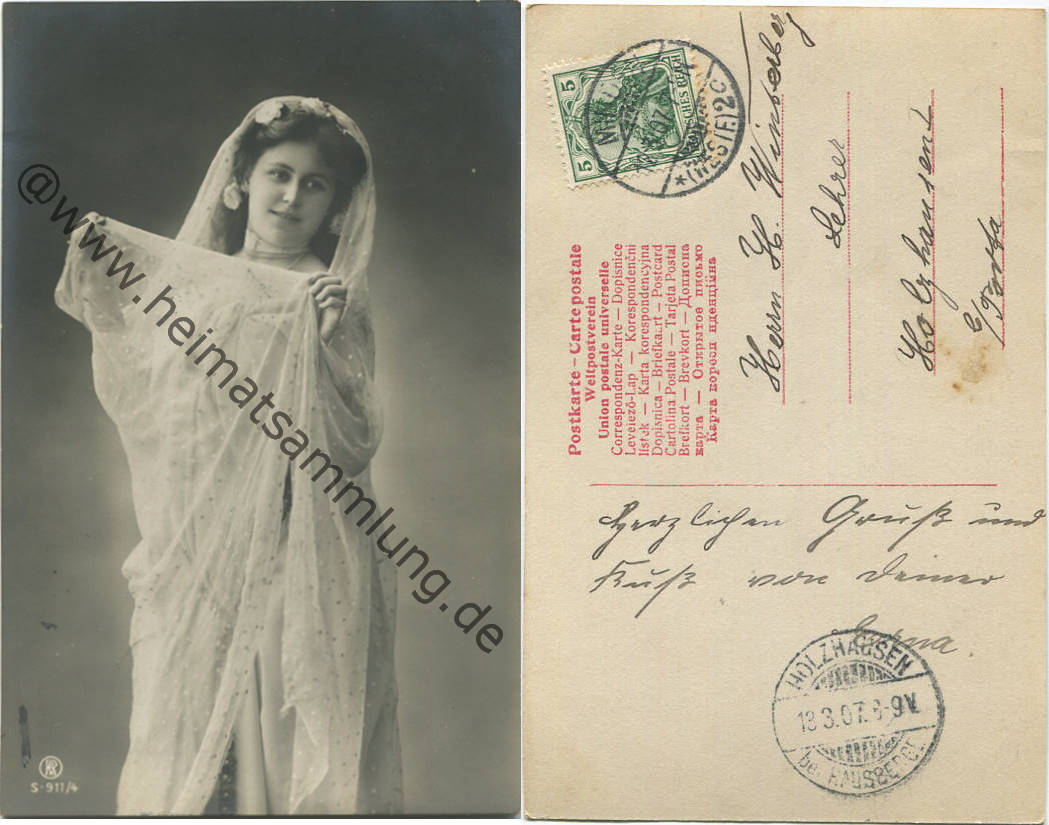 @www.heimatsammlung.de
S-911/4
5
5
DEUTSCHES REICH
(WESTF) 2C
Herrn H. Winterberg
Lehrer
Holzhausen
b/Porta
Postkarte – Carte postale
Weltpostverein
Union postale universelle
Correspondenz-Karte – Dopisnice
Levelező-Lap — Korespondenční
lístek — Karta korespondencyjna
Dopisnica – Briefkaart – Postcard
Cartolina Postale – Tarjeta Postal
Brefkort – Brevkort – Дописна
карта — Открытое письмо
Карта кореспонденційна
Herzlichen Gruß und
Kuß von Deiner
Erna.
HOLZHAUSEN
13.3.07. 8-9V.
bei HAUSBERGE